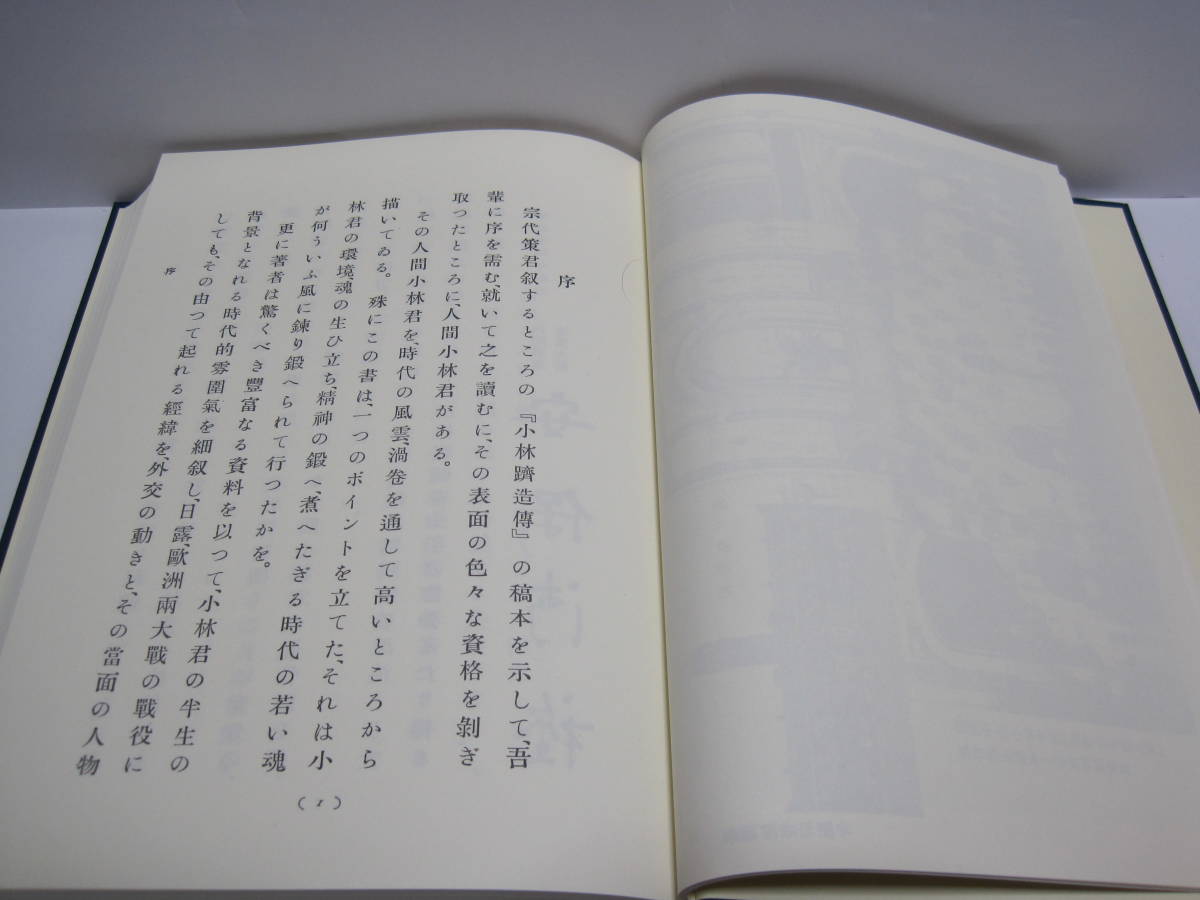 序
宗代策君叙するところの『小林躋造傳』の稿本を示して、吾
輩に序を需む、就いて之を讀むに、その表面の色々な資格を剝ぎ
取つたところに、人間小林君がある。
その人間小林君を、時代の風雲、渦卷を通して高いところから
描いてゐる。殊にこの書は、一つのポイントを立てた、それは小
林君の環境、魂の生ひ立ち、精神の鍛へ、煮へたぎる時代の若い魂
が何ういふ風に鍊り鍛へられて行つたかを。
更に著者は驚くべき豐富なる資料を以つて、小林君の半生の
背景となれる時代的雰圍氣を細叙し、日露、歐洲兩大戰の戰役に
しても、その由つて起れる經緯を、外交の動きと、その當面の人物
序
(1)